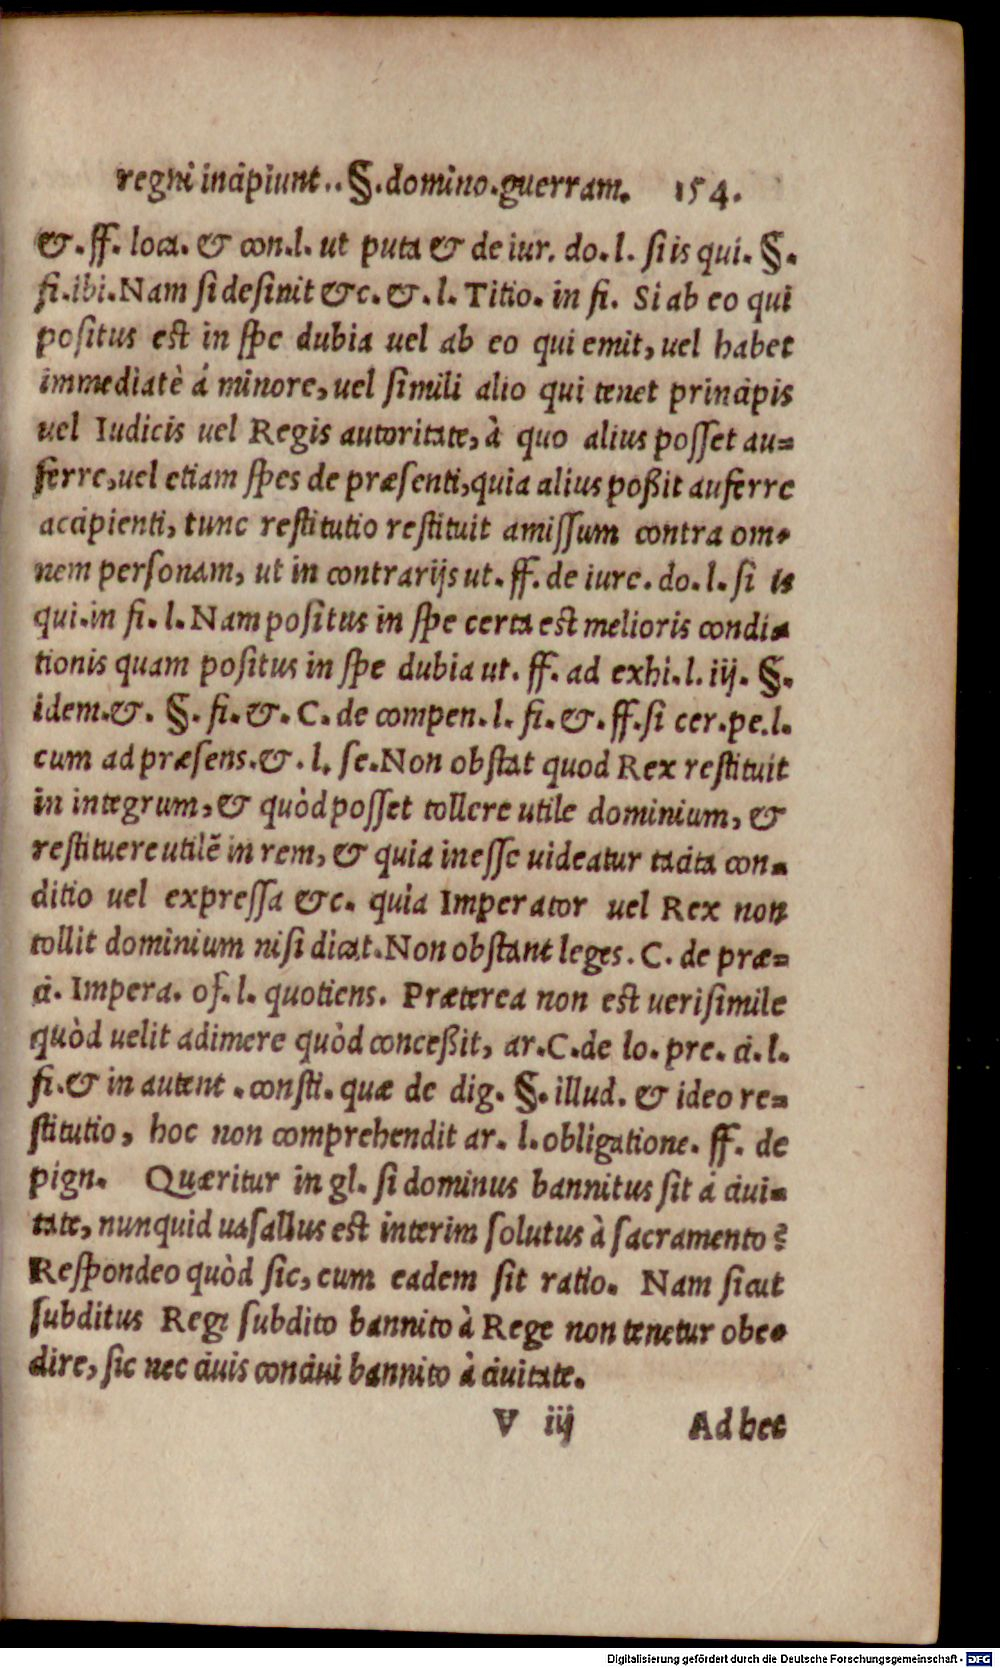 regni incipiunt.. §. domino. guerram. 154.
&. ff. loca. & con. l. ut puta & de iur. do. l. si is qui. §.
fi. ibi. Nam si desinit &c. &. l. Titio. in fi. Si ab eo qui
positus est in spe dubia uel ab eo qui emit, uel habet
immediatè á minore, uel simili alio qui tenet principis
uel Iudicis uel Regis autoritate, à quo alius posset au=
ferre, uel etiam spes de præsenti, quia alius poßit auferre
accipienti, tunc restitutio restituit amissum contra om=
nem personam, ut in contrarijs ut. ff. de iure. do. l. si is
qui. in fi. l. Nam positus in spe certa est melioris condi=
tionis quam positus in spe dubia ut. ff. ad exhi. l. iij. §.
idem. &. §. fi. &. C. de compen. l. fi. &. ff. si cer. pe. l.
cum ad præsens. &. l. se. Non obstat quod Rex restituit
in integrum, & quòd posset tollere utile dominium, &
restituere utilẽ in rem, & quia inesse uideatur tacita con=
ditio uel expressa &c. quia Imperator uel Rex non
tollit dominium nisi dicat. Non obstant leges. C. de præ=
ci. Impera. of. l. quotiens. Præterea non est uerisimile
quòd uelit adimere quòd conceßit, ar. C. de lo. pre. ci. l.
fi. & in autent. consti. quæ de dig. §. illud. & ideo re=
stitutio, hoc non comprehendit ar. l. obligatione. ff. de
pign. Quæritur in gl. si dominus bannitus sit á ciui=
tate, nunquid uasallus est interim solutus à sacramento?
Respondeo quòd sic, cum eadem sit ratio. Nam sicut
subditus Regi subdito bannito à Rege non tenetur obe=
dire, sic nec ciuis conciui bannito à ciuitate.
V iij Ad hec
Digitalisierung gefördert durch die Deutsche Forschungsgemeinschaft - DFG